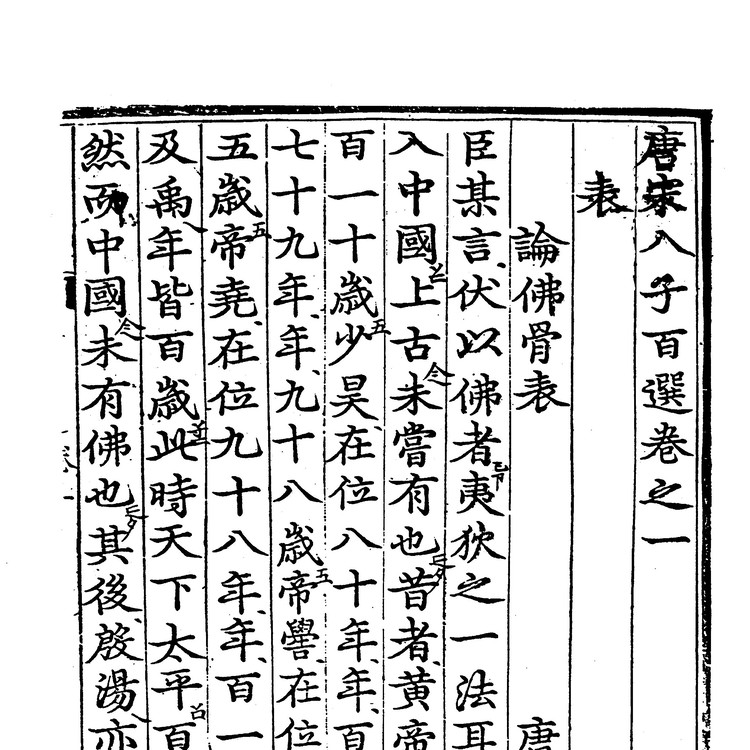 唐宋八子百選卷之一
表
論佛骨表 唐
臣某言伏以佛者夷狄之一法耳
入中國上古未嘗有也昔者黃帝
百一十歲少昊在位八十年年百
七十九年年九十八歲帝嚳在位
五歲帝堯在位九十八年年百一
及禹年皆百歲此時天下太平百
然而中國未有佛也其後殷湯亦